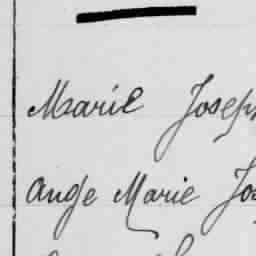 Marie Joseph
Ange Marie Jos